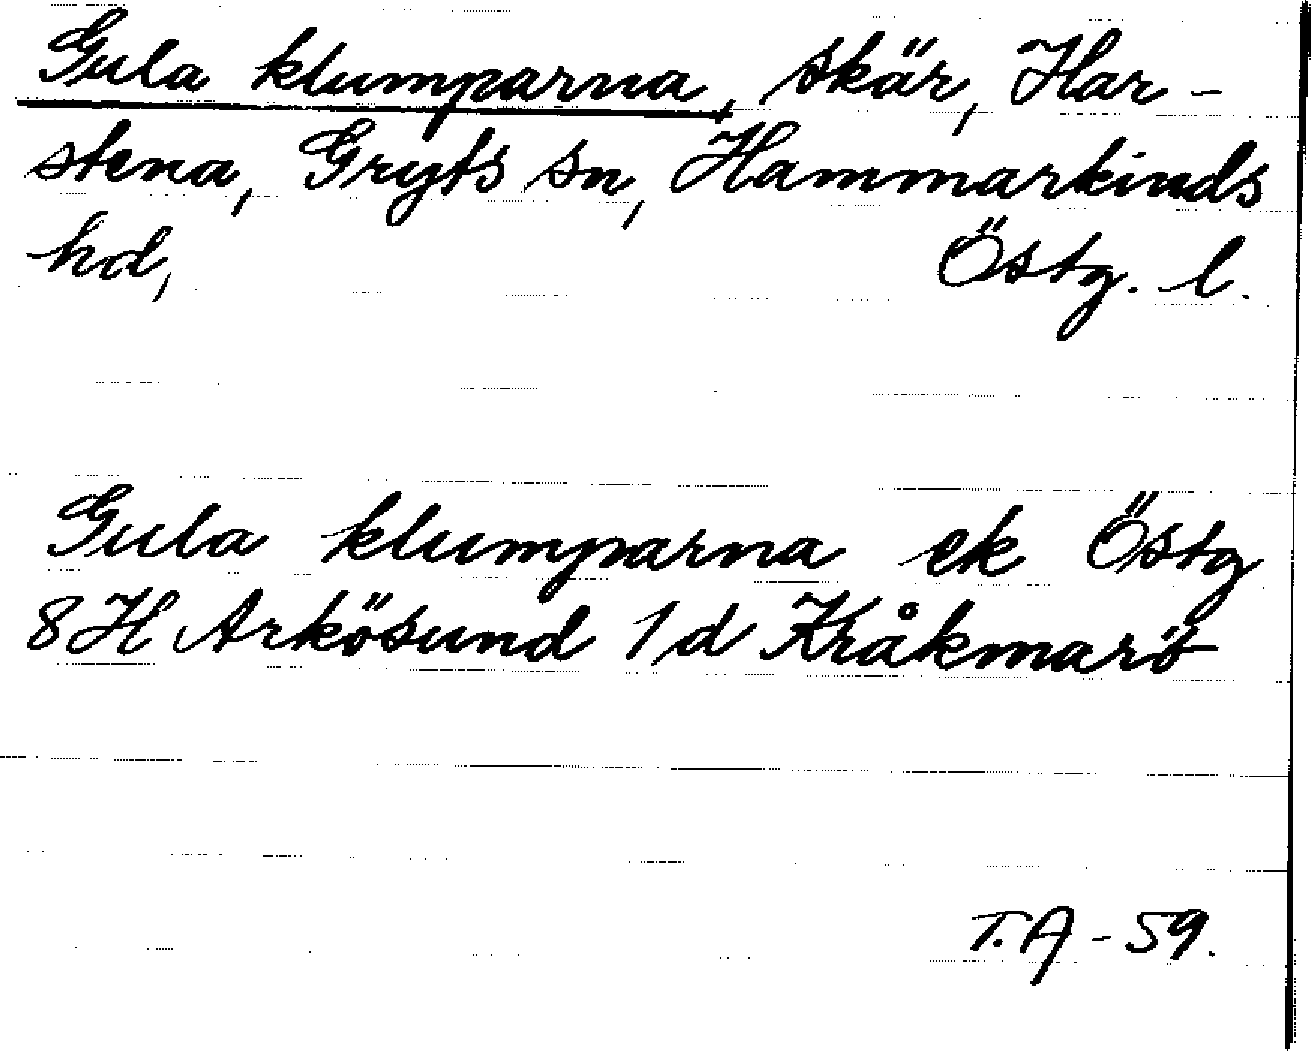 Gula klumparna, skär, Har-
stena, Gryts sn, Hammarkinds
hd, Östg. l.
Gula klumparna ek Östg
8H Arkösund 1 d Kråkmarö
T.A - 59.